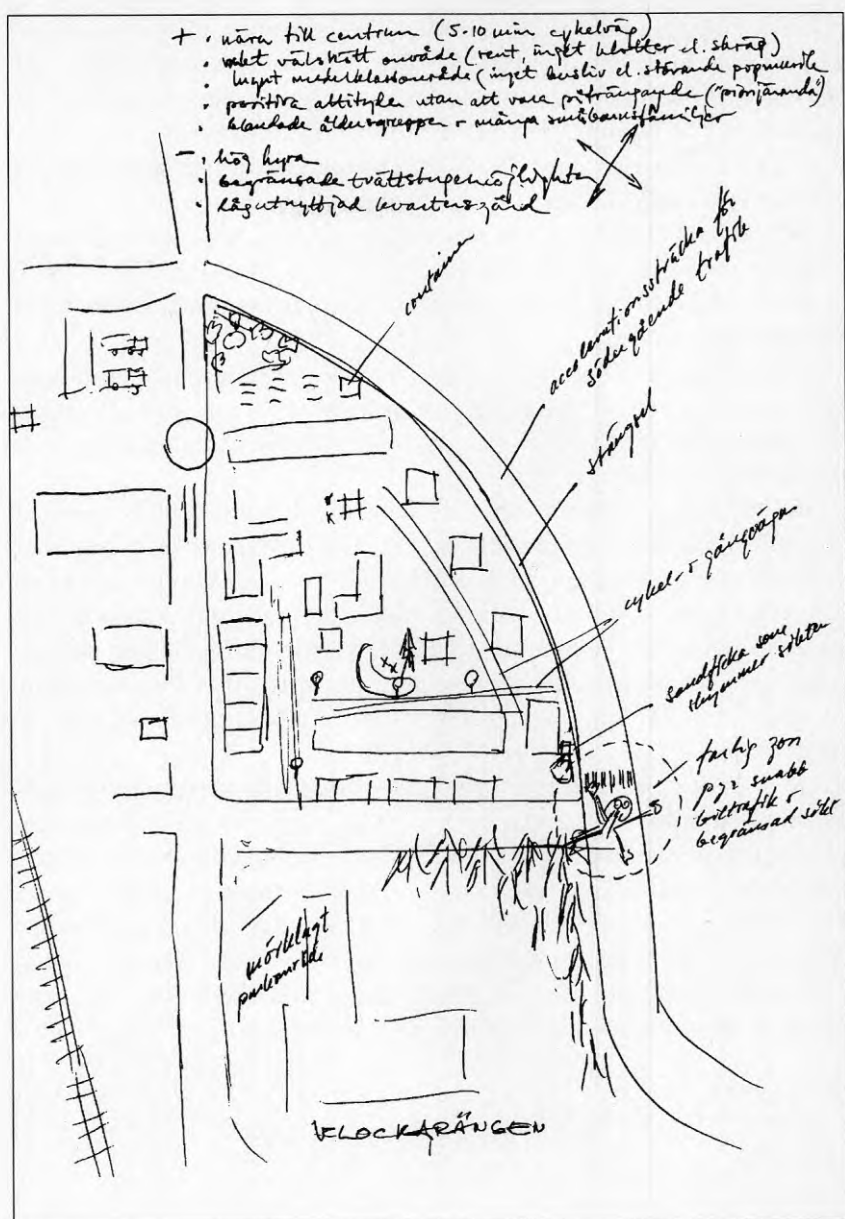 + · nära till centrum (5-10 min cykelväg)
· mkt välskött område (rent, inget klotter el. skräp)
· lugnt medelklassområde (inget busliv el. störande popmusik
· positiva attityder utan att vara påträngande ("
· blandade åldersgrupper o många småbarnsfamiljer
- · hög hyra
· begränsade tvättstugemöjligheter
· lågutnyttjad kvartersgård
N
container
accelerationssträcka för
södergående trafik
stängsel
cykel- o gångvägar
sandficka som
skymmer sikten
farlig zon
pga snabb
biltrafik o
begränsad sikt
mörklagt
parkområde
KLOCKARÄNGEN